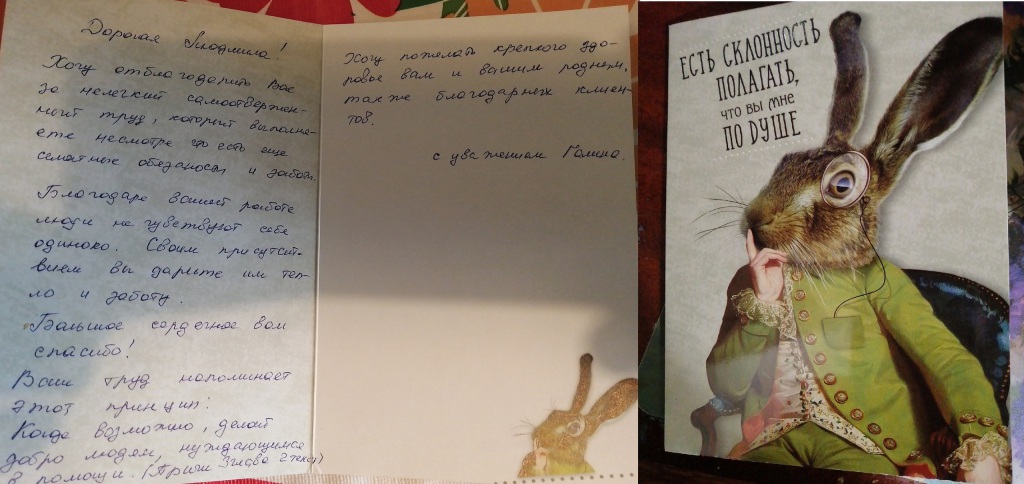 Дорогая Людмила!
Хочу отблагодарить Вас
за нелегкий самоотвержен-
ный труд, который выполня-
ете несмотря что есть еще
семейные обязаносьи и заботы.
Благодаря вашей работе
люди не чувствуют себя
одиноко. Своим присутст-
вием вы дарите им теп-
ло и заботу.
Большое сердечное вам
спасибо!
Ваш труд напоминает
этот принцип:
Когда возможно, делай
добро людям, нуждающимся
в помощи. (Притчи 3 глава 27 текст)
Хочу пожелать крепкого здо-
ровье вам и вашим родным,
также благодарных клиен-
тов.
с уважением Галина.
ЕСТЬ СКЛОННОСТЬ
ПОЛАГАТЬ,
что вы мне
ПО ДУШЕ